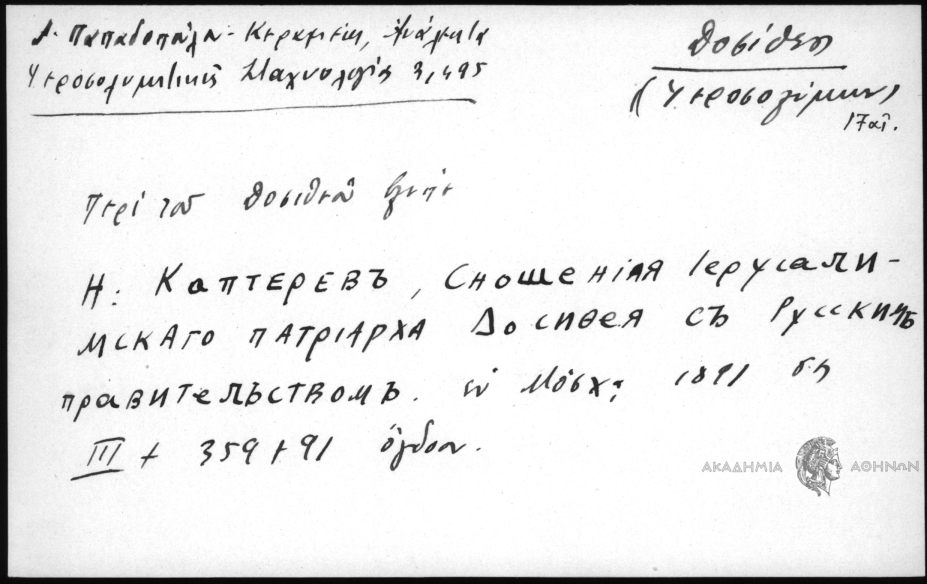 Α. Παπαδοπούλου-Κεραμέως, Ἀνάλεκτα
Ἱεροσολυμιτικῆς Σταχυολογίας 3, 495
Δοσίθεος
(Ἱεροσολύμων)
17 αἰ.
Περὶ τοῦ Δοσιθέου
Н. Каптеревъ, Сношенія Іерусали-
мскаго патріарха Досиѳея съ Русскимъ
правительствомъ. ἐν Μόσχ: 1891 σελ
III + 359 + 91 ὄγδοον.
ΑΚΑΔΗΜΙΑ ΑΘΗΝΩΝ